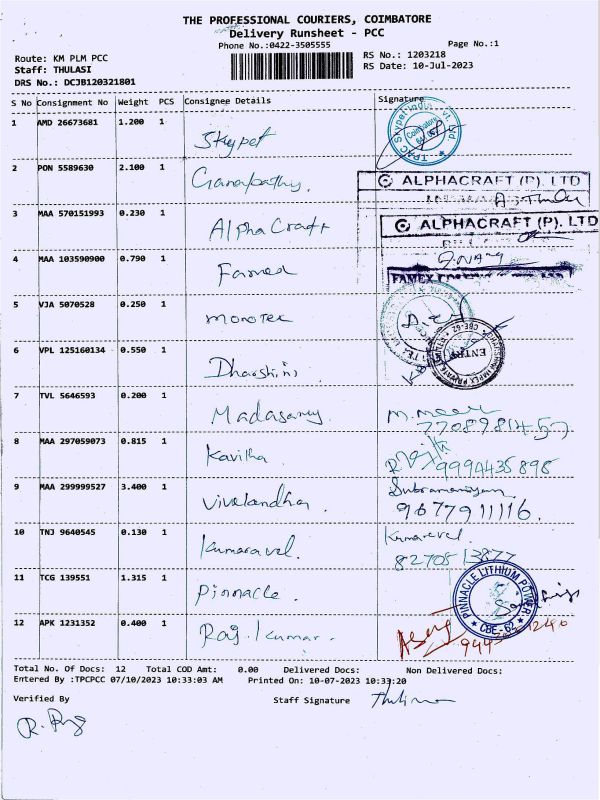 THE PROFESSIONAL COURIERS, COIMBATORE
Delivery Runsheet - PCC
Phone No.:0422-3505555
Page No.:1
Route: KM PLM PCC
RS No.: 1203218
Staff: THULASI
RS Date: 10-Jul-2023
DRS No.: DCJB120321801
S No Consignment No Weight PCS Consignee Details Signature
1 AMD 26673681 1.200 1 Skypet
2 PON 5589630 2.100 1 Ganapathy.
ALPHACRAFT (P). LTD
3 MAA 570151993 0.230 1 Alpha Craft
ALPHACRAFT (P). LTD
4 MAA 103590900 0.790 1 Famed
5 VJA 5070528 0.250 1 monotex
6 VPL 125160134 0.550 1 Dharshini
ENTRY
CBE-62
7 TVL 5646593 0.200 1 Madasamy
8 MAA 297059073 0.815 1 Kavitha 9994435898
9 MAA 299999527 3.400 1 Vivekandha Subramaniyam
9677911116.
10 TNJ 9640545 0.130 1 Kumaravel. Kumaravel.
82705 13877
11 TCG 139551 1.315 1 Pinnacle. PINNACLE LITHIUM POWER
CBE-62
12 APK 1231352 0.400 1 Raj.kumar.
Total No. Of Docs: 12 Total COD Amt: 0.00 Delivered Docs: Non Delivered Docs:
Entered By :TPCPCC 07/10/2023 10:33:03 AM Printed On: 10-07-2023 10:33:20
Verified By Staff Signature